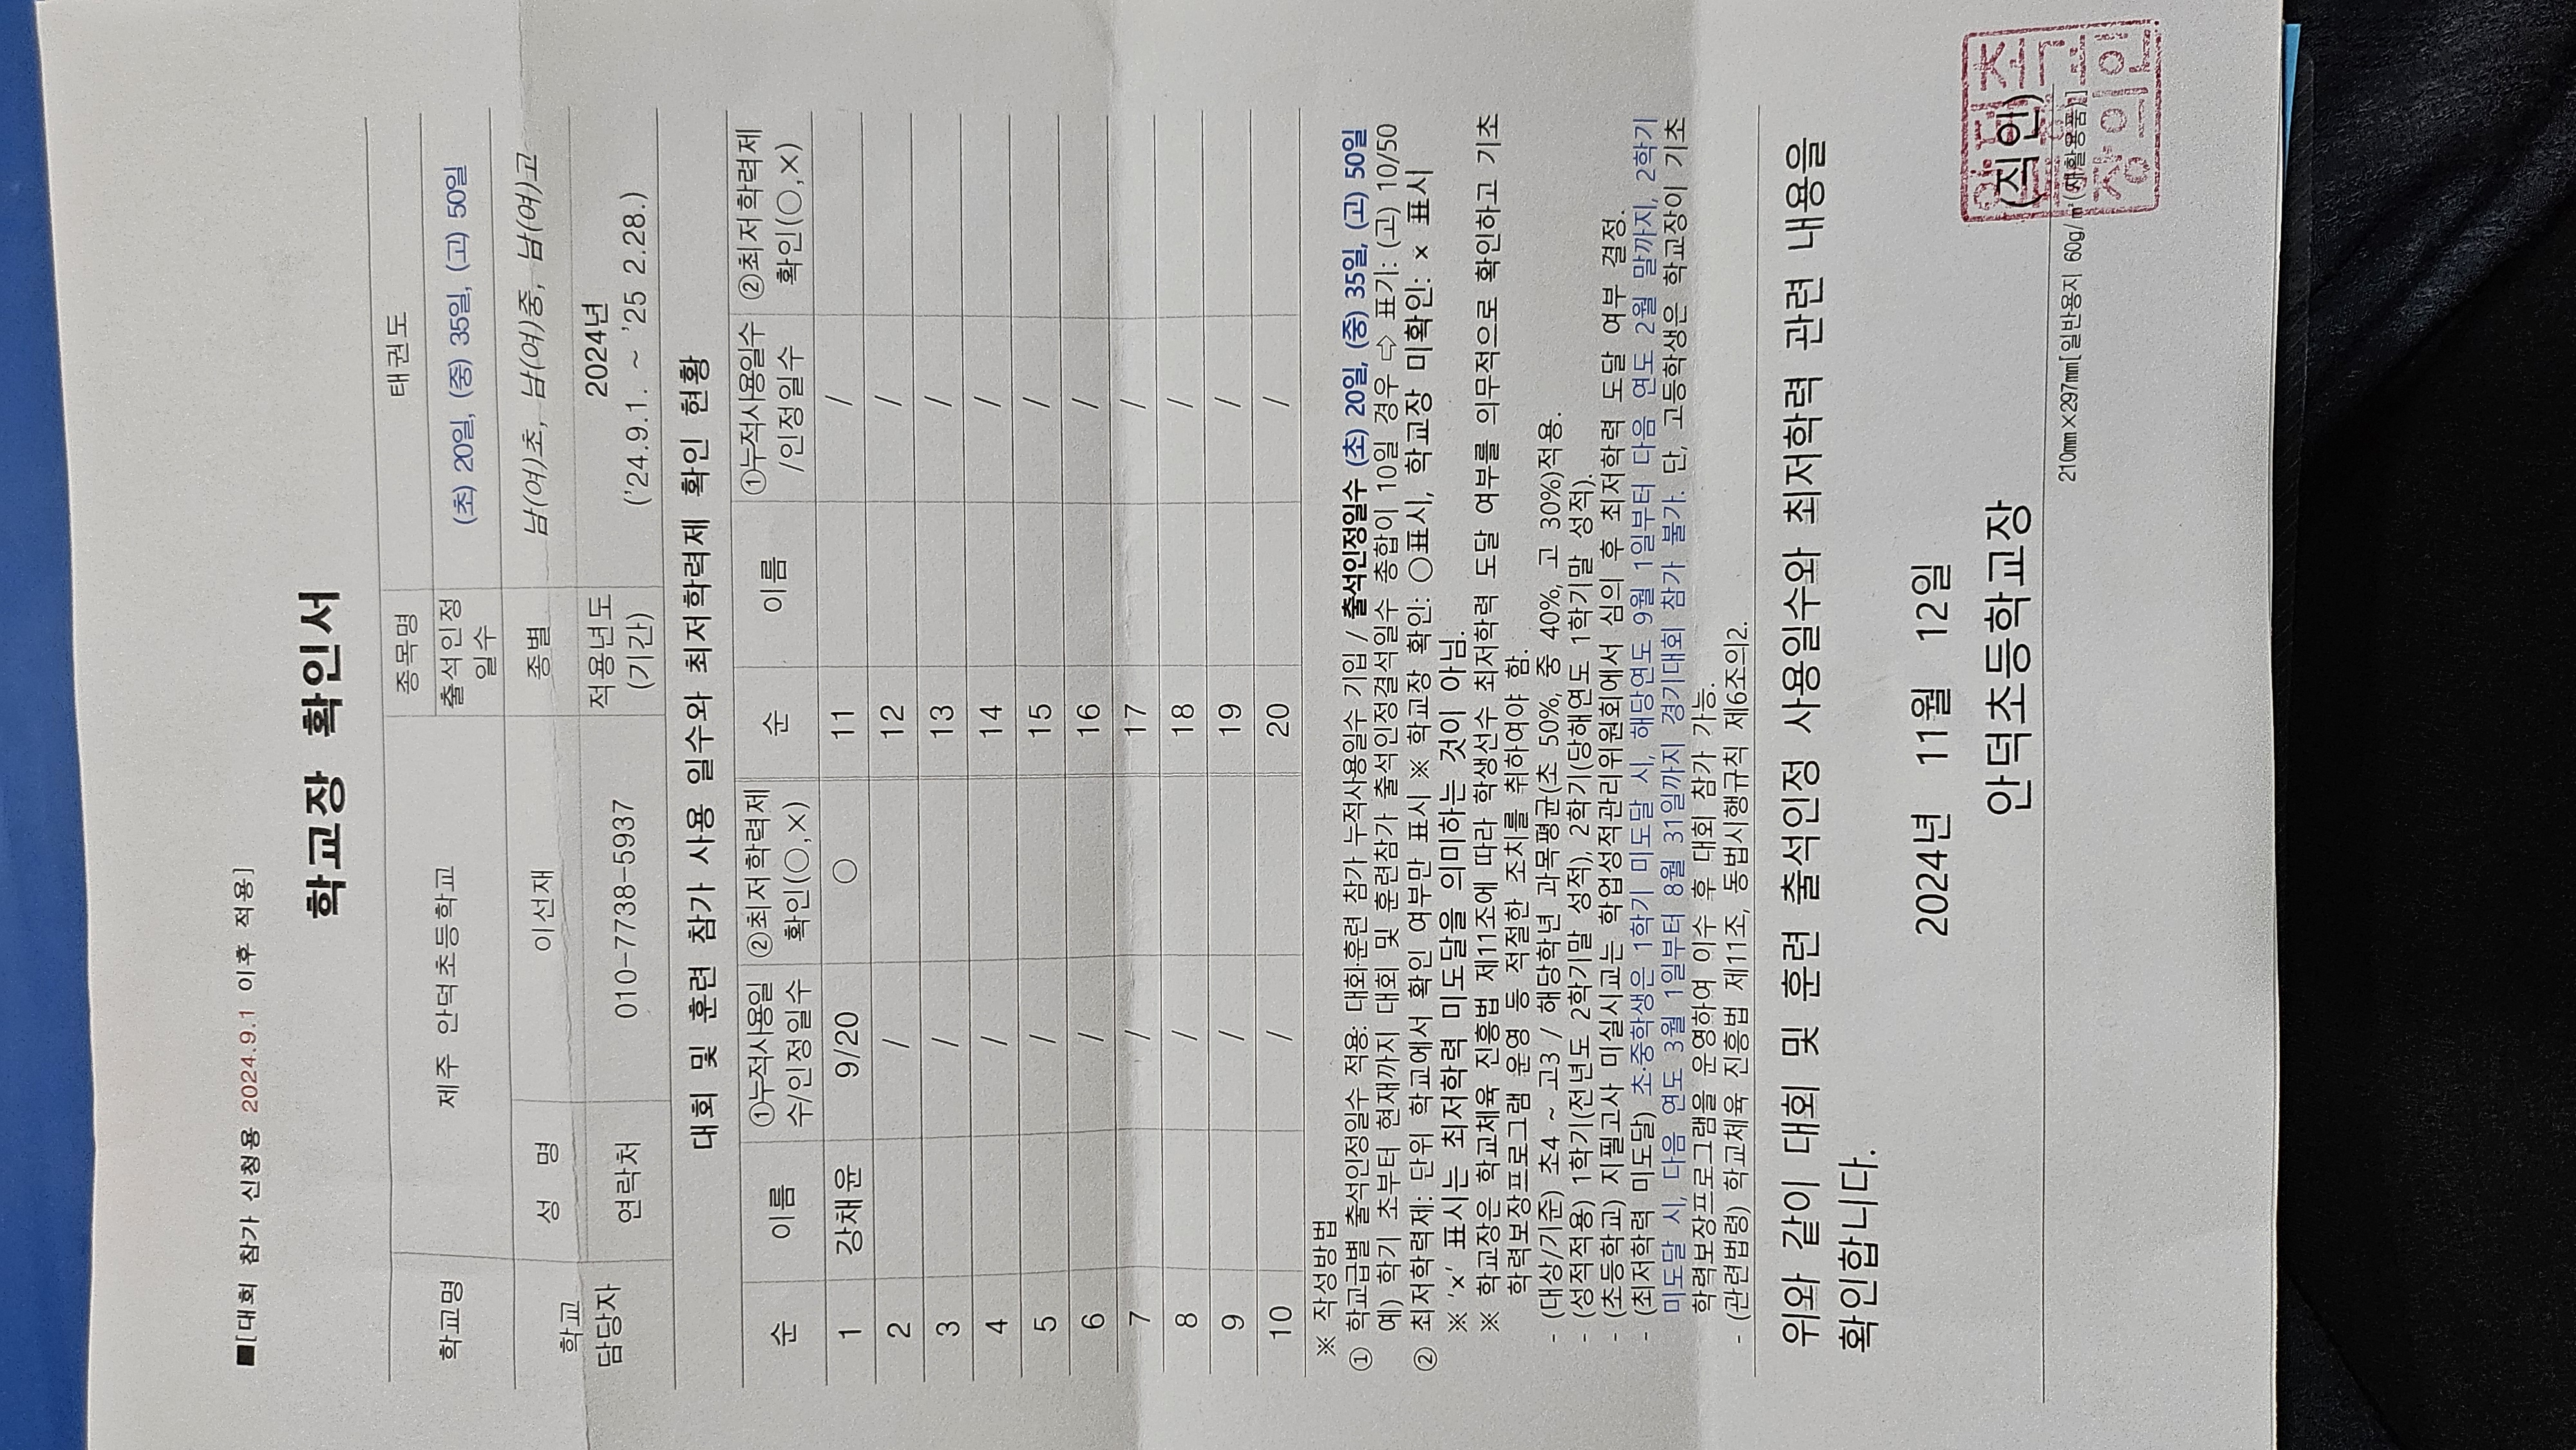 ■[대회 참가 신청용 2024.9.1 이후 적용]
학교장 확인서
학교명 제주 안덕초등학교 종목명 태권도
출석인정 일수 (초) 20일, (중) 35일, (고) 50일
학교 담당자 성 명 이선재 종별 남(여)초, 남(여)중, 남(여)고
연락처 010-7738-5937 적용년도 (기간) 2024년 ('24.9.1. ~ '25 2.28.)
대회 및 훈련 참가 사용 일수와 최저학력제 확인 현황
순 이름 ①누적사용일수/인정일수 ②최저학력제 확인(○,×) 순 이름 ①누적사용일수/인정일수 ②최저학력제 확인(○,×)
1 강채윤 9/20 ○ 11 /
2 / 12 /
3 / 13 /
4 / 14 /
5 / 15 /
6 / 16 /
7 / 17 /
8 / 18 /
9 / 19 /
10 / 20 /
※ 작성방법
① 학교급별 출석인정일수 적용: 대회·훈련 참가 누적사용일수 기입 / 출석인정일수 (초) 20일, (중) 35일, (고) 50일
예) 학기 초부터 현재까지 대회 및 훈련참가 출석인정결석일수 총합이 10일 경우 ⇨ 표기: (고) 10/50
② 최저학력제: 단위 학교에서 확인 여부만 표시 ※ 학교장 확인: ○표시, 학교장 미확인: × 표시
※ '×' 표시는 최저학력 미도달을 의미하는 것이 아님.
※ 학교장은 학교체육 진흥법 제11조에 따라 학생선수 최저학력 도달 여부를 의무적으로 확인하고 기초
학력보장프로그램 운영 등 적절한 조치를 취하여야 함.
- (대상/기준) 초4 ~ 고3 / 해당학년 과목평균(초 50%, 중 40%, 고 30%)적용.
- (성적적용) 1학기(전년도 2학기말 성적), 2학기(당해연도 1학기말 성적).
- (초등학교) 지필고사 미실시교는 학업성적관리위원회에서 심의 후 최저학력 도달 여부 결정.
- (최저학력 미도달) 초·중학생은 1학기 미도달 시, 해당연도 9월 1일부터 다음 연도 2월 말까지, 2학기
미도달 시, 다음 연도 3월 1일부터 8월 31일까지 경기대회 참가 불가. 단, 고등학생은 학교장이 기초
학력보장프로그램을 운영하여 이수 후 대회 참가 가능.
- (관련법령) 학교체육 진흥법 제11조, 동법시행규칙 제6조의2.
위와 같이 대회 및 훈련 출석인정 사용일수와 최저학력 관련 내용을
확인합니다.
2024년 11월 12일
안덕초등학교장 (직인)
210㎜×297㎜[일반용지 60g/㎡(재활용품)]